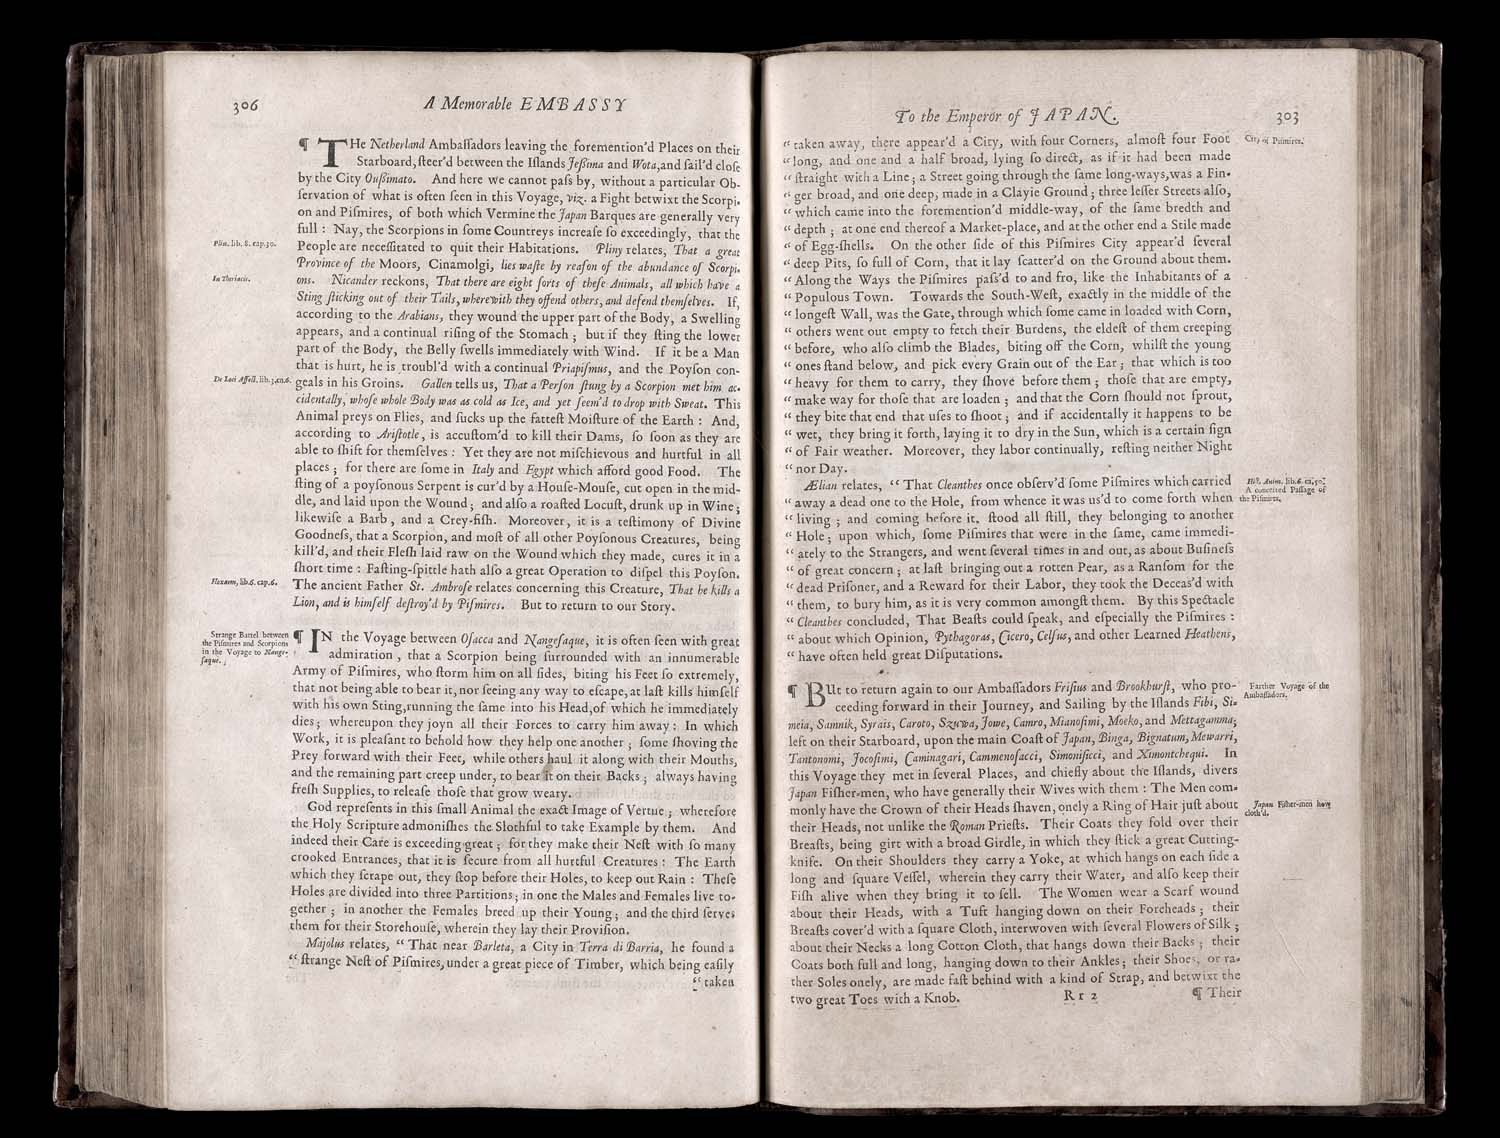 306
A Memorable EMBASSY
¶ THe Netherland Ambaſſadors leaving the foremention'd Places on their
Starboard, ſteer'd between the Iſlands Jeßima and Wota, and ſail'd cloſe
by the City Oußimato. And here we cannot paſs by, without a particular Ob-
ſervation of what is often ſeen in this Voyage, viz. a Fight betwixt the Scorpi-
on and Piſmires, of both which Vermine the Japan Barques are generally very
full : Nay, the Scorpions in ſome Countreys increaſe ſo exceedingly, that the
Plin. lib. 8. cap. 30.
People are neceſſitated to quit their Habitations. Pliny relates, That a great
Province of the Moors, Cinamolgi, lies waſte by reaſon of the abundance of Scorpi-
In Theriacis.
ons. Nicander reckons, That there are eight ſorts of theſe Animals, all which have a
Sting ſticking out of their Tails, wherewith they offend others, and defend themſelves. If,
according to the Arabians, they wound the upper part of the Body, a Swelling
appears, and a continual riſing of the Stomach ; but if they ſting the lower
part of the Body, the Belly ſwells immediately with Wind. If it be a Man
that is hurt, he is troubl'd with a continual Priapiſmus, and the Poyſon con-
De Loci Affect. lib.
geals in his Groins. Gallen tells us, That a Perſon ſtung by a Scorpion met him ac-
cidentally, whoſe whole Body was as cold as Ice, and yet ſeem'd to drop with Sweat. This
Animal preys on Flies, and ſucks up the fatteſt Moiſture of the Earth : And,
according to Ariſtotle, is accuſtom'd to kill their Dams, ſo ſoon as they are
able to ſhift for themſelves : Yet they are not miſchievous and hurtful in all
places ; for there are ſome in Italy and Egypt which afford good Food. The
ſting of a poyſonous Serpent is cur'd by a Houſe-Mouſe, cut open in the mid-
dle, and laid upon the Wound ; and alſo a roaſted Locuſt, drunk up in Wine ;
likewiſe a Barb, and a Crey-fiſh. Moreover, it is a teſtimony of Divine
Goodneſs, that a Scorpion, and moſt of all other Poyſonous Creatures, being
kill'd, and their Fleſh laid raw on the Wound which they made, cures it in a
ſhort time : Faſting-ſpittle hath alſo a great Operation to diſpel this Poyſon.
Hexaem, lib. 6. cap. 6.
The ancient Father St. Ambroſe relates concerning this Creature, That he kills a
Lion, and is himſelf deſtroy'd by Piſmires. But to return to our Story.
Strange Battel between
the Piſmires and Scorpions
in the Voyage to Nange-
ſaque.
¶ IN the Voyage between Oſacca and Nangeſaque, it is often ſeen with great
admiration, that a Scorpion being ſurrounded with an innumerable
Army of Piſmires, who ſtorm him on all ſides, biting his Feet ſo extremely,
that not being able to bear it, nor ſeeing any way to eſcape, at laſt kills himſelf
with his own Sting, running the ſame into his Head, of which he immediately
dies ; whereupon they joyn all their Forces to carry him away : In which
Work, it is pleaſant to behold how they help one another ; ſome ſhoving the
Prey forward with their Feet, while others haul it along with their Mouths,
and the remaining part creep under, to bear it on their Backs ; always having
freſh Supplies, to releaſe thoſe that grow weary.
God repreſents in this ſmall Animal the exact Image of Vertue ; wherefore
the Holy Scripture admoniſhes the Slothful to take Example by them. And
indeed their Care is exceeding great ; for they make their Neſt with ſo many
crooked Entrances, that it is ſecure from all hurtful Creatures : The Earth
which they ſcrape out, they ſtop before their Holes, to keep out Rain : Theſe
Holes are divided into three Partitions ; in one the Males and Females live to-
gether ; in another the Females breed up their Young ; and the third ſerves
them for their Storehouſe, wherein they lay their Proviſion.
Majolus relates, “ That near Barleta, a City in Terra di Barria, he found a
“ ſtrange Neſt of Piſmires, under a great piece of Timber, which being eaſily
“ taken
To the Emperor of JAPAN.
303
“ taken away, there appear'd a City, with four Corners, almoſt four Foot
City of Piſmires.
“ long, and one and a half broad, lying ſo direct, as if it had been made
“ ſtraight with a Line ; a Street going through the ſame long-ways, was a Fin-
“ ger broad, and one deep, made in a Clayie Ground ; three leſſer Streets alſo,
“ which came into the foremention'd middle-way, of the ſame bredth and
“ depth ; at one end thereof a Market-place, and at the other end a Stile made
“ of Egg-ſhells. On the other ſide of this Piſmires City appear'd ſeveral
“ deep Pits, ſo full of Corn, that it lay ſcatter'd on the Ground about them.
“ Along the Ways the Piſmires paſs'd to and fro, like the Inhabitants of a
“ Populous Town. Towards the South-Weſt, exactly in the middle of the
“ longeſt Wall, was the Gate, through which ſome came in loaded with Corn,
“ others went out empty to fetch their Burdens, the eldeſt of them creeping
“ before, who alſo climb the Blades, biting off the Corn, whilſt the young
“ ones ſtand below, and pick every Grain out of the Ear ; that which is too
“ heavy for them to carry, they ſhove before them ; thoſe that are empty,
“ make way for thoſe that are loaden ; and that the Corn ſhould not ſprout,
“ they bite that end that uſes to ſhoot ; and if accidentally it happens to be
“ wet, they bring it forth, laying it to dry in the Sun, which is a certain ſign
“ of Fair weather. Moreover, they labor continually, reſting neither Night
“ nor Day.
Ælian relates, “ That Cleanthes once obſerv'd ſome Piſmires which carried
Hiſt. Anim. lib. 6. ca. 50.
A conceited Paſſage of
the Piſmires.
“ away a dead one to the Hole, from whence it was us'd to come forth when
“ living ; and coming before it, ſtood all ſtill, they belonging to another
“ Hole ; upon which, ſome Piſmires that were in the ſame, came immedi-
“ ately to the Strangers, and went ſeveral times in and out, as about Buſineſs
“ of great concern ; at laſt bringing out a rotten Pear, as a Ranſom for the
“ dead Priſoner, and a Reward for their Labor, they took the Deceas'd with
“ them, to bury him, as it is very common amongſt them. By this Spectacle
“ Cleanthes concluded, That Beaſts could ſpeak, and eſpecially the Piſmires :
“ about which Opinion, Pythagoras, Cicero, Celſus, and other Learned Heathens,
“ have often held great Diſputations.
¶ BUt to return again to our Ambaſſadors Friſius and Brookhurſt, who pro-
Farther Voyage of the
Ambaſſadors.
ceeding forward in their Journey, and Sailing by the Iſlands Fibi, Si-
meia, Samnik, Syrais, Caroto, Szuwa, Jowe, Camro, Mianoſimi, Moeko, and Mettagamma;
left on their Starboard, upon the main Coaſt of Japan, Binga, Bignatum, Mewarri,
Tantonomi, Jocoſimi, Caminagari, Cammenoſacci, Simoniſicci, and Ximontchequi. In
this Voyage they met in ſeveral Places, and chiefly about the Iſlands, divers
Japan Fiſher-men, who have generally their Wives with them : The Men com-
monly have the Crown of their Heads ſhaven, onely a Ring of Hair juſt about
Japan Fiſher-men how
cloth'd.
their Heads, not unlike the Roman Prieſts. Their Coats they fold over their
Breaſts, being girt with a broad Girdle, in which they ſtick a great Cutting-
knife. On their Shoulders they carry a Yoke, at which hangs on each ſide a
long and ſquare Veſſel, wherein they carry their Water, and alſo keep their
Fiſh alive when they bring it to ſell. The Women wear a Scarf wound
about their Heads, with a Tuft hanging down on their Foreheads ; their
Breaſts cover'd with a ſquare Cloth, interwoven with ſeveral Flowers of Silk ;
about their Necks a long Cotton Cloth, that hangs down their Backs ; their
Coats both full and long, hanging down to their Ankles ; their Shoes, or ra-
ther Soles onely, are made faſt behind with a kind of Strap, and betwixt the
two great Toes with a Knob.
Rr 2
¶ Their